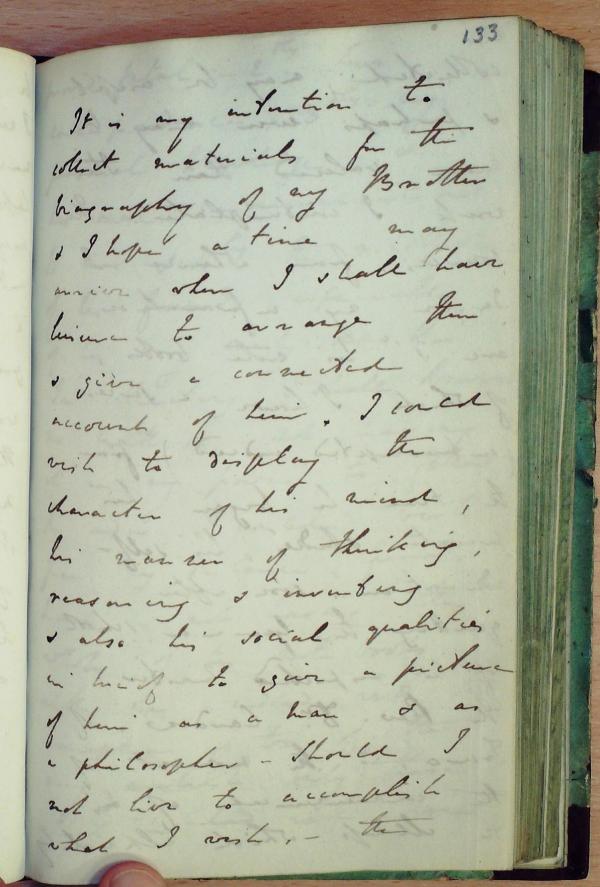 133
It is my intention to
collect materials for the
biography of my Brother
& I hope a time may
arrive when I shall have
leisure to arrange them
& give a connected
account of him. I could
wish to display the
character of his mind,
his manner of thinking,
reasoning & inventing
& also his social qualities
in brief to give a picture
of him as a man & as
a philosopher - Should I
not live to accomplish
what I wish, - the